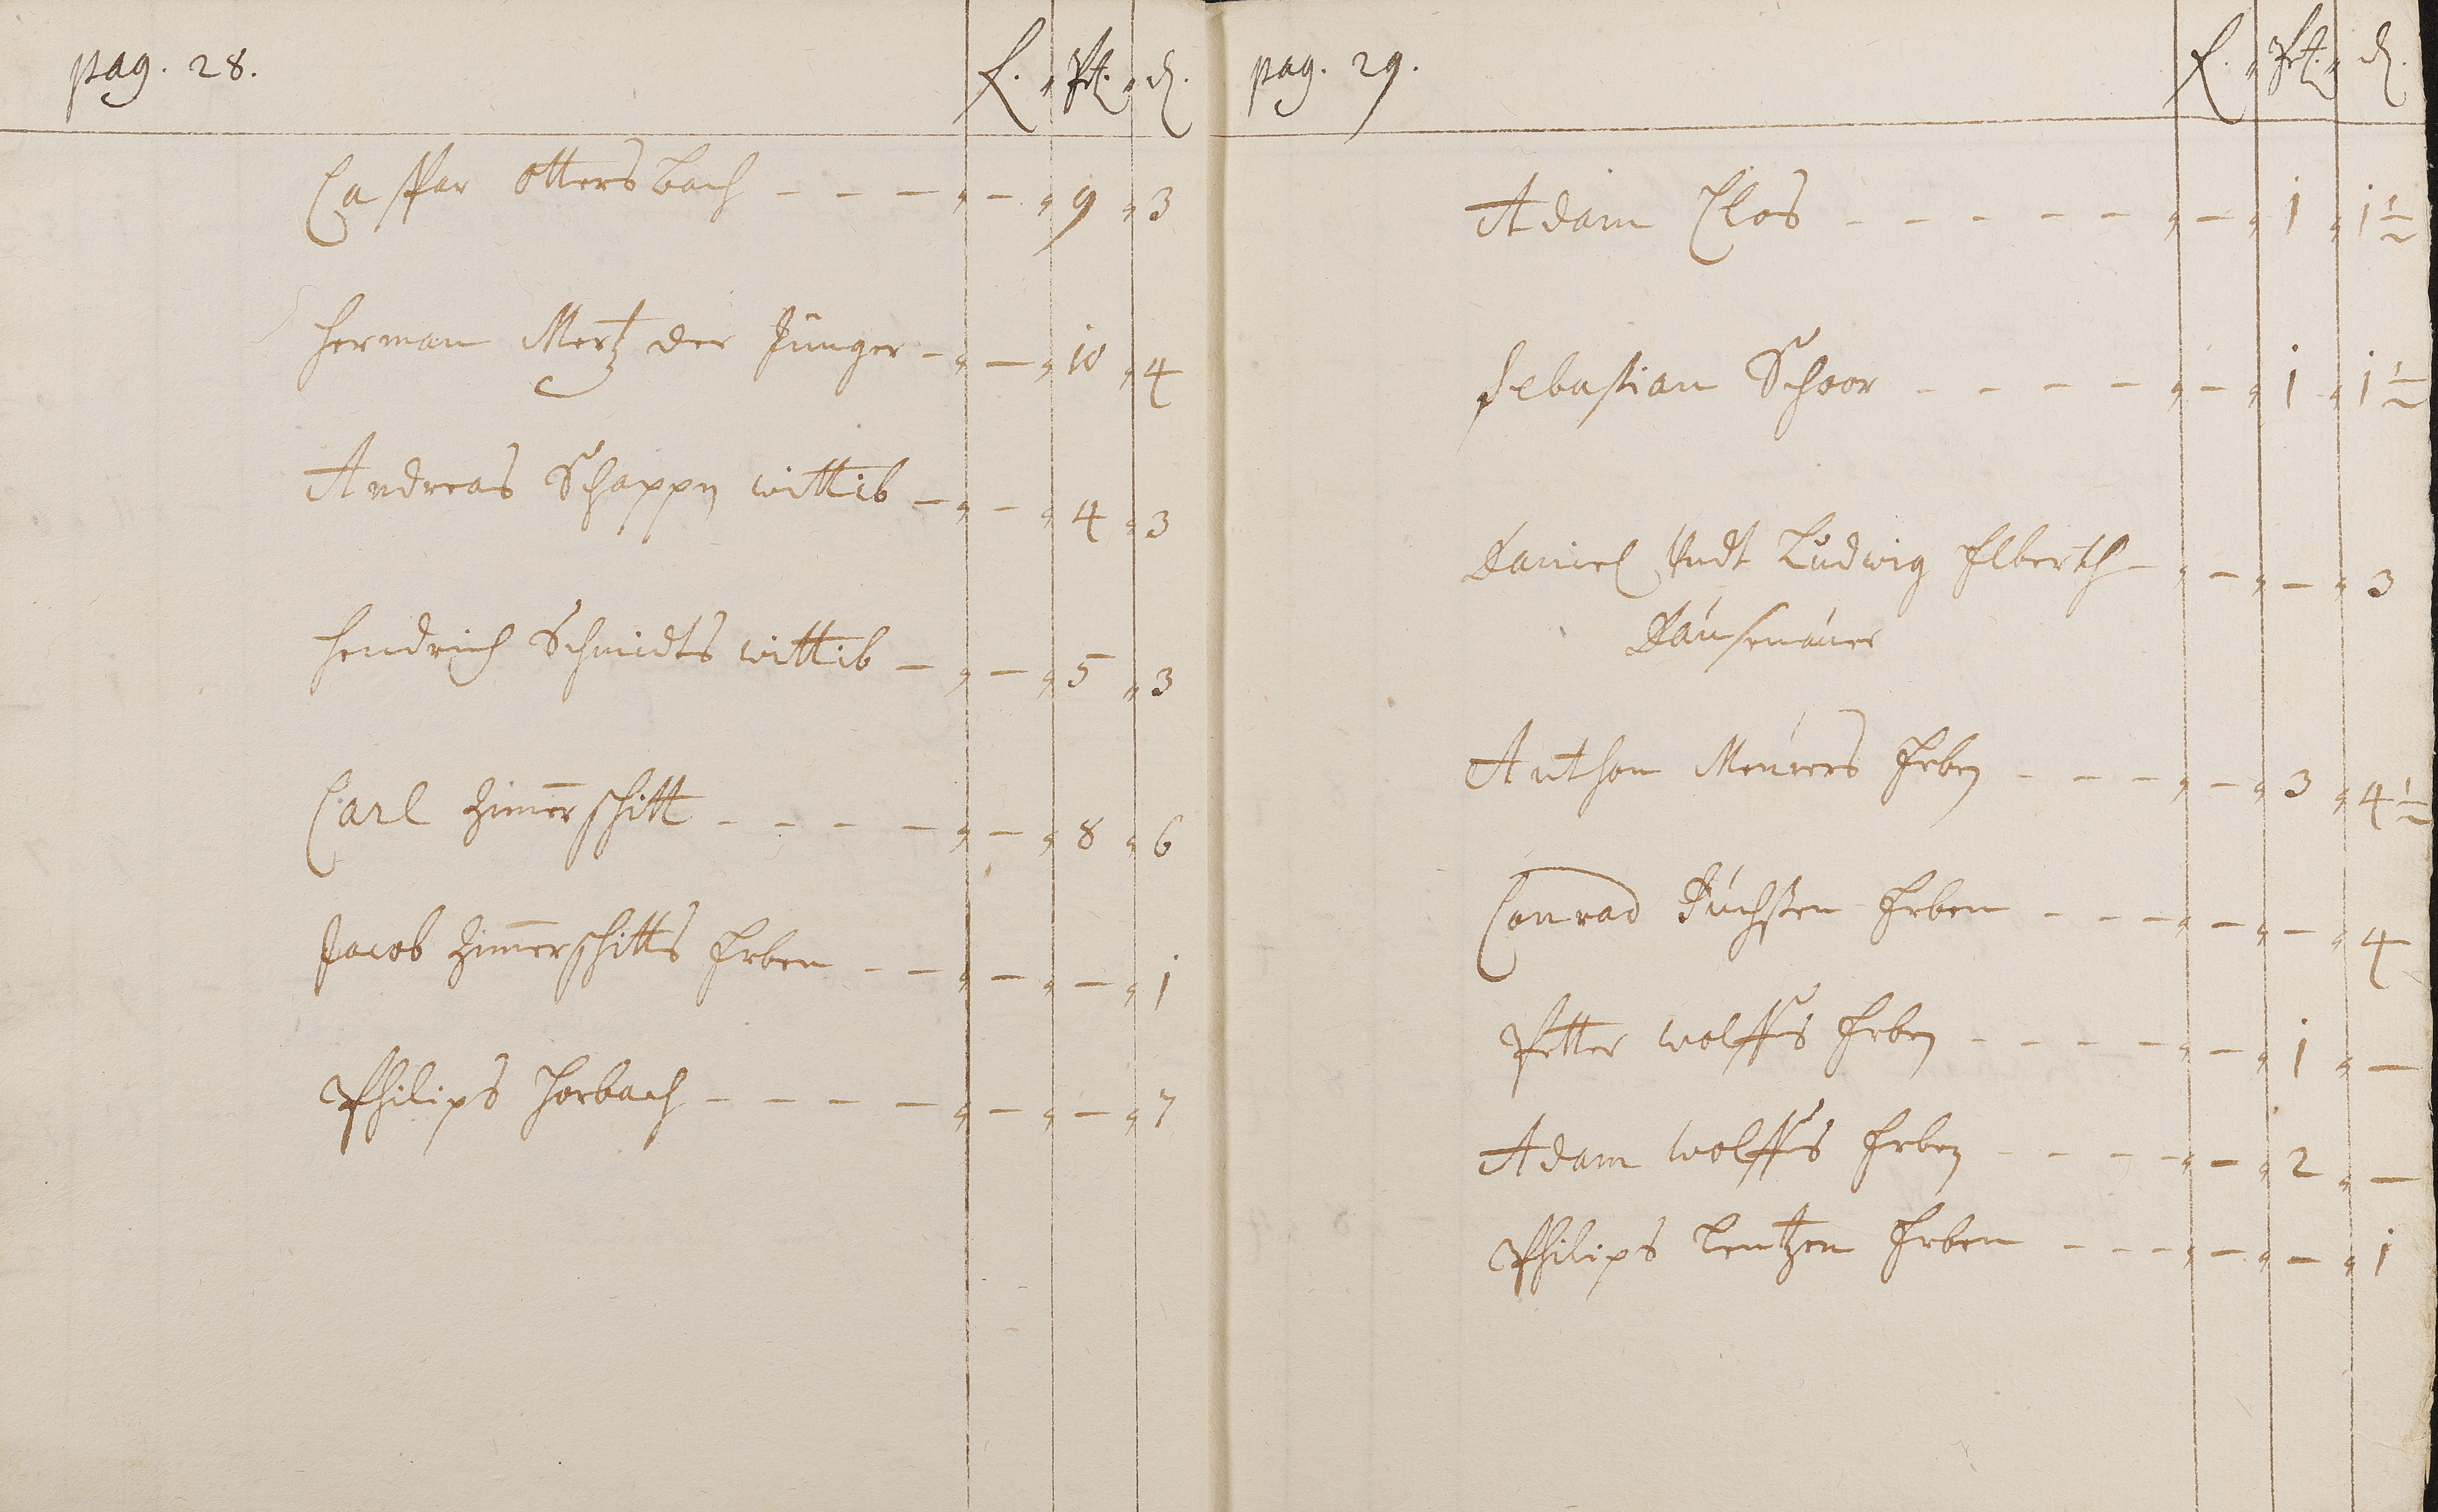 pag. 28.
f. " xr. " d.
Caspar Ottersbach - - - " - " 9 " 3
Herman Mertz der Jünger - " - " 10 " 4
Andreas Schappen wittib - " - " 4 " 3
Hendrich Schmidts wittib - " - " 5 " 3
Carl Zim̄erschitt - - - - " - " 8 " 6
Jacob Zim̄erschitts Erben - - " - " - " 1
Philips Horbach - - - - " - " - " 7
pag. 29.
f. " xr. " d.
Adam Clos - - - - - - " - " 1 " 1 1/2
Sebastian Schoor - - - - - " - " 1 " 1 1/2
Daniel Undt Ludwig Elberth - " - " - " 3
Dausenauer
Anthon Meurers Erben - - - " - " 3 " 4 1/2
Conrad Erben - - - " - " - " 4
Petter Wolffs Erben - - - - " - " 1 " -
Adam Wolffs Erben - - - - " - " 2 " -
Philips Lentzen Erben - - - " - " - " 1